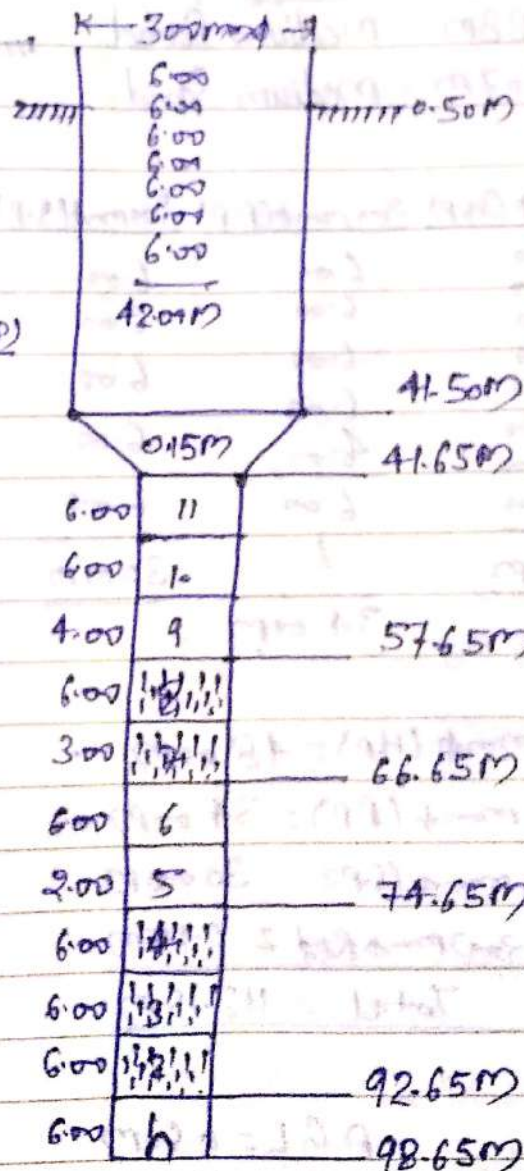 300mmϕ
6.00
6.00 0.50M
6.00
6.00
6.00
6.00
6.00
42.00M
41.50M
0.15M 41.65M
6.00 11
6.00 10
4.00 9 57.65M
6.00 8
3.00 7 66.65M
6.00 6
2.00 5 74.65M
6.00 4
6.00 3
6.00 2 92.65M
6.00 1 98.65M